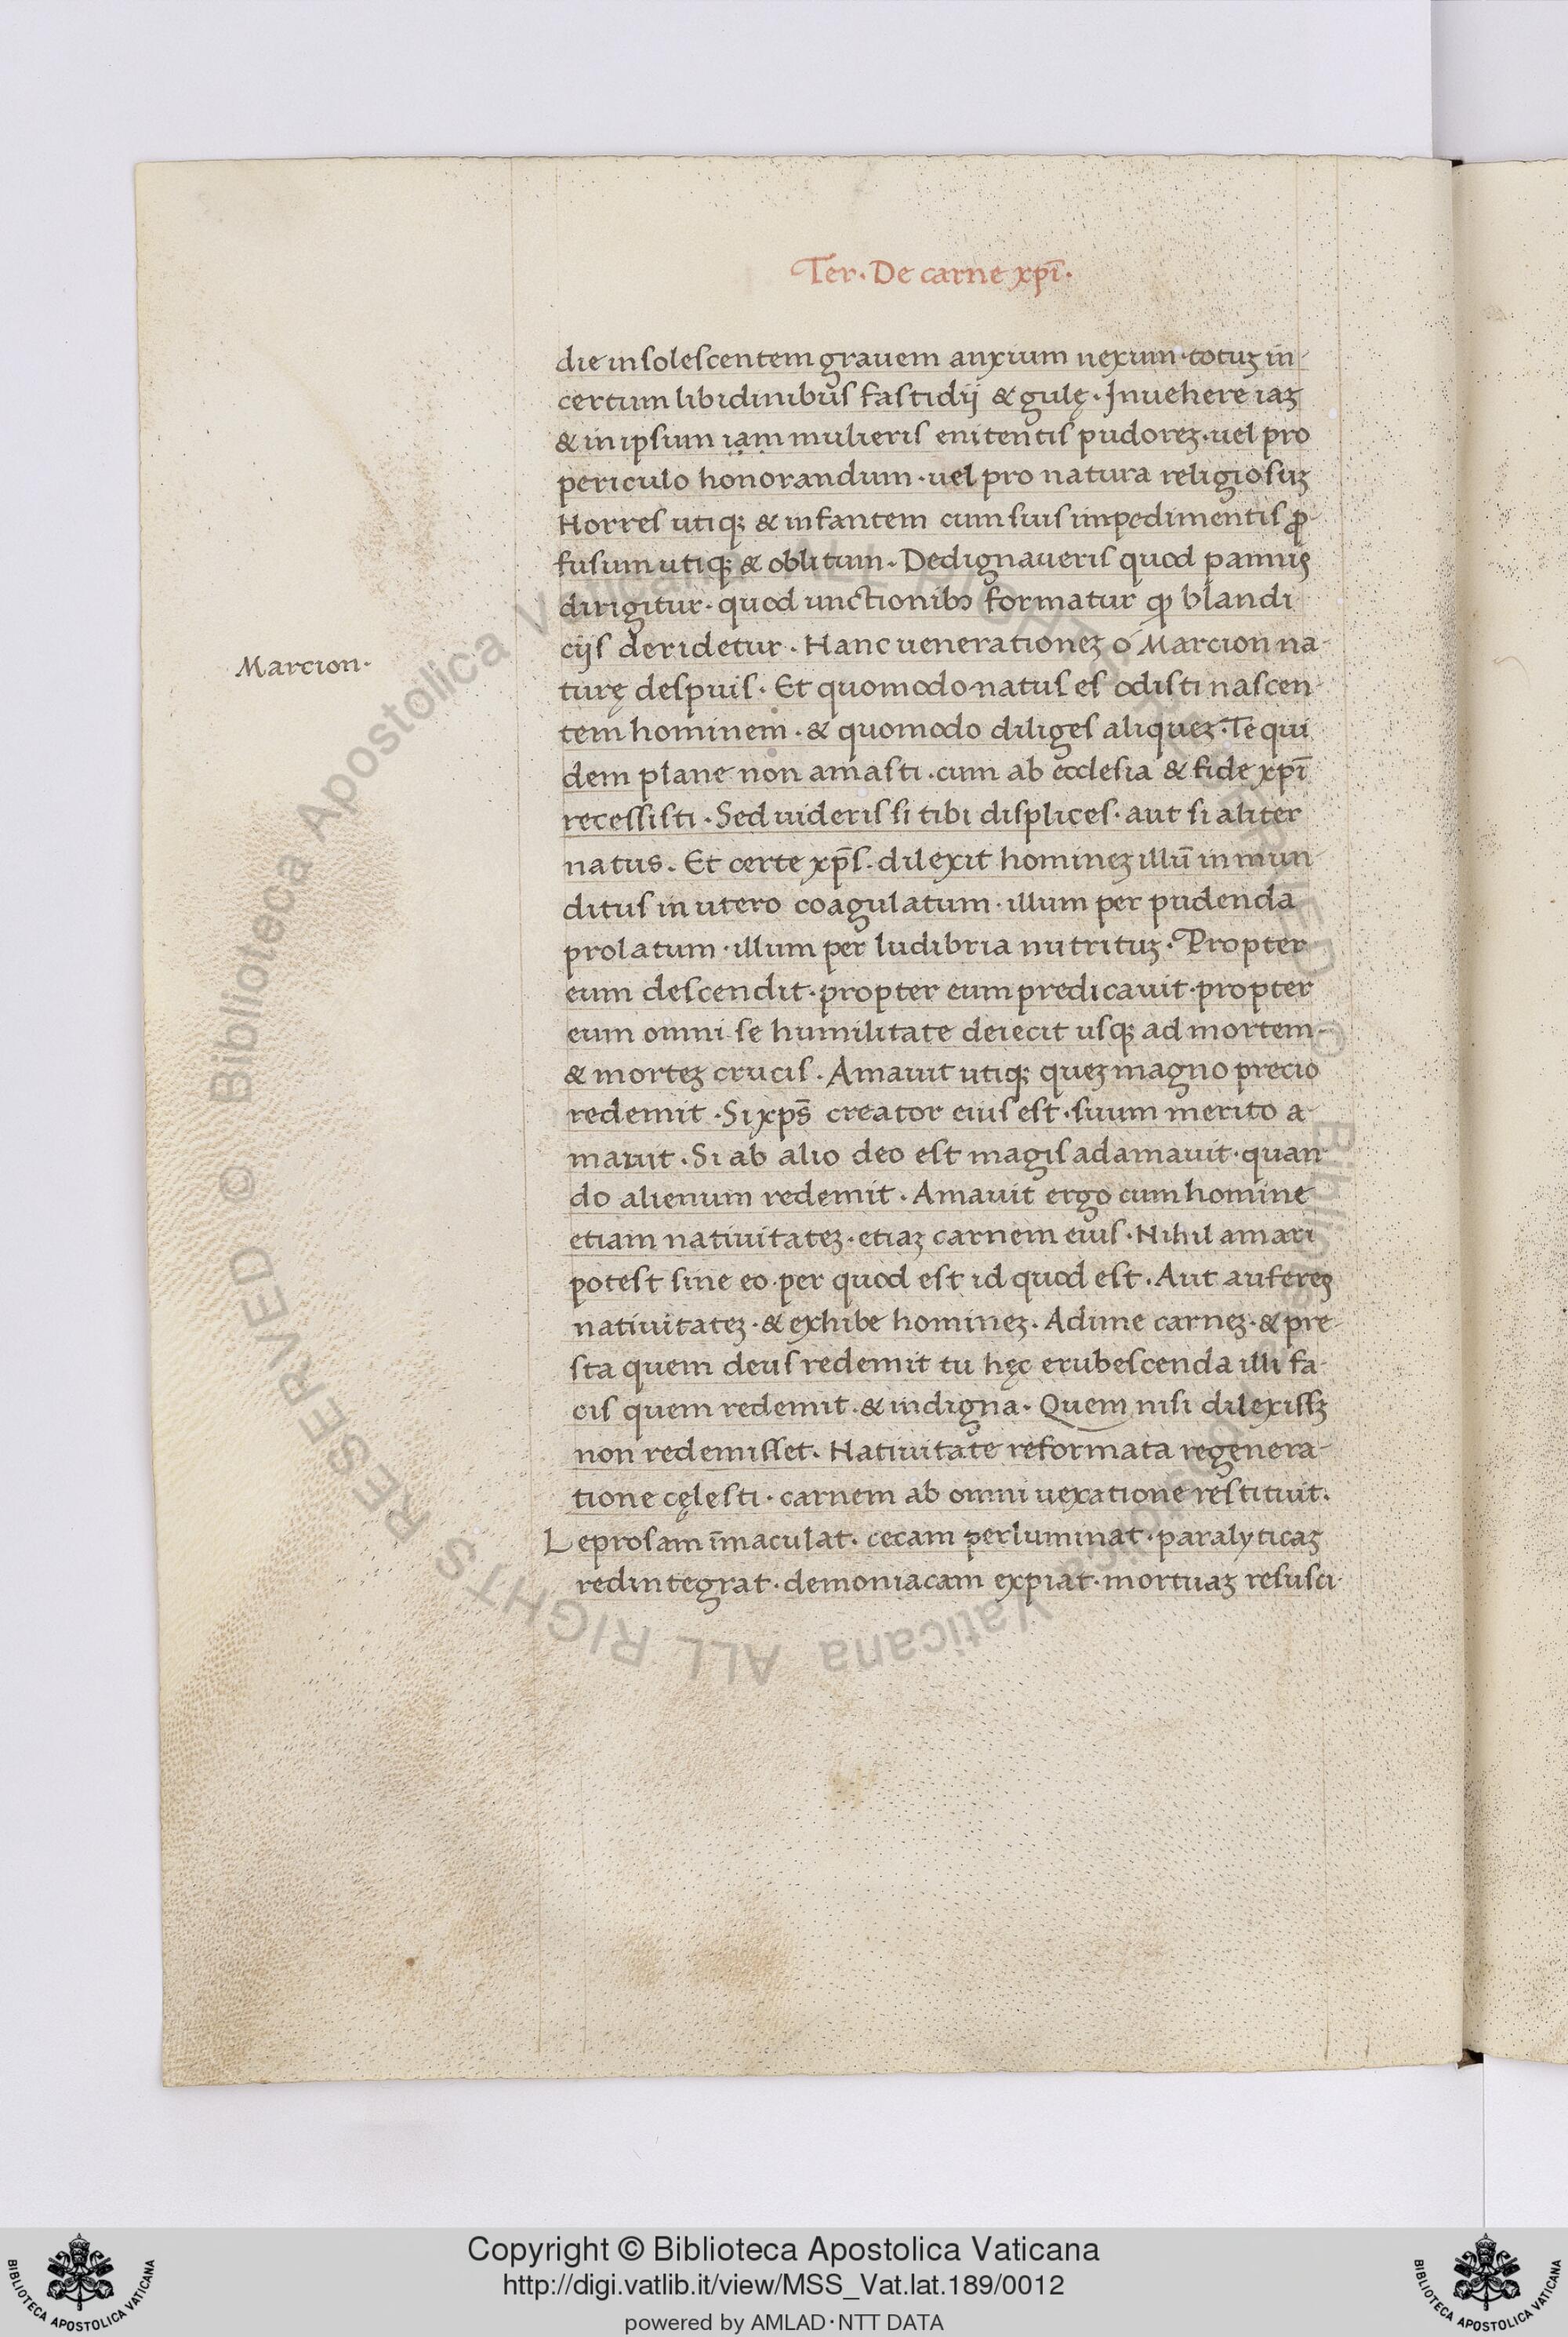 Ter · De carne xp̄i ·
die insolescentem grauem anxium uexum · totuʒ in-
certum libidinibus fastidij & gulę · Inuehere iaʒ
& in ipsum iam mulieris enitentis pudoreʒ · uel pro
periculo honorandum · uel pro natura religiosuʒ
Horres utiqꝫ & infantem cum suis impedimentis ꝓ-
fusum utiqꝫ & oblitum · Dedignaueris quod pannis
dirigitur · quod unctionibꝫ formatur ꝙ blandi
cijs deridetur · Hanc uenerationeʒ o Marcion na-
Marcion ·
turę despuis · Et quomodo natus es odisti nascen-
tem hominem · & quomodo diliges aliqueʒ · Te qui
dem plane non amasti · cum ab ecclesia & fide xp̄i
recessisti · Sed uideris si tibi displices · aut si aliter
natus · Et certe xp̄s · dilexit homineʒ illū in mun-
ditus in utero coagulatum · illum per pudenda
prolatum · illum per ludibria nutrituʒ · Propter
eum descendit · propter eum predicauit · propter
eum omni se humilitate deiecit usqꝫ ad mortem -
& morteʒ crucis · Amauit utiqꝫ queʒ magno precio
redemit · Si xp̄s creator eius est · suum merito a-
mauit · Si ab alio deo est magis adamauit · quan-
do alienum redemit · Amauit ergo cum homine
etiam natiuitateʒ · etiaʒ carnem eius · Nihil amari
potest sine eo · per quod est id quod est · Aut aufereʒ
natiuitateʒ · & exhibe homineʒ · Adime carneʒ · & pre-
sta quem deus redemit tu hęc erubescenda illi fa-
cis quem redemit · & indigna · Quem nisi dilexissʒ
non redemisset · Natiuitate reformata regenera-
tione cęlesti · carnem ab omni uexatione restituit ·
Leprosam īmaculat · cecam perluminat · paralyticaʒ
redintegrat · demoniacam expiat · mortuaʒ resusci-
Copyright © Biblioteca Apostolica Vaticana
http://digi.vatlib.it/view/MSS_Vat.lat.189/0012
powered by AMLAD·NTT DATA
BIBLIOTECA APOSTOLICA VATICANA
BIBLIOTECA APOSTOLICA VATICANA
© Biblioteca Apostolica Vaticana ALL RIGHTS RESERVED © Biblioteca Apostolica Vaticana ALL RIGHTS RESERVED